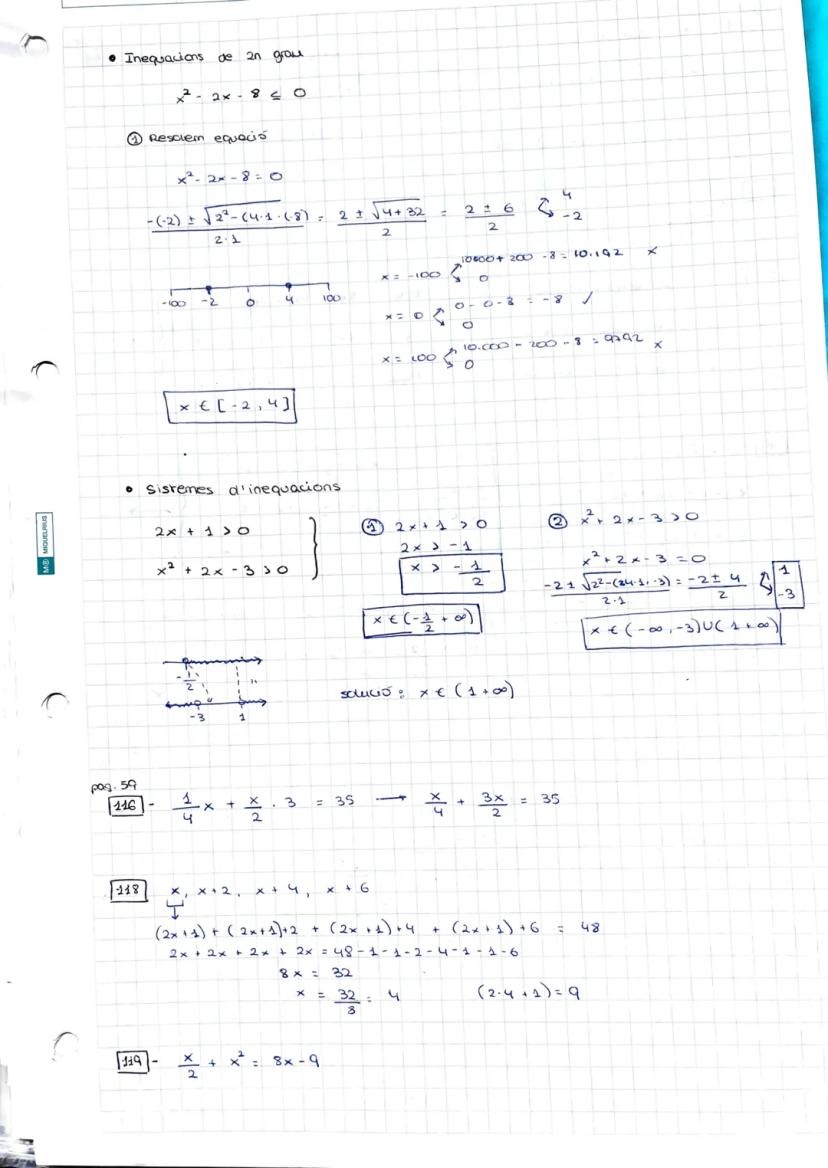 • Inequacions de 2n grau
x² - 2x - 8 ≤ 0
① Resolem equació
x² - 2x - 8 = 0
-(-2) ± √2²-(4·1·(-8) / 2·1 = 2 ± √4+32 / 2 = 2 ± 6 / 2 4 -2
x = -100 10000 + 200 - 8 = 10.192 x
0
-100 -2 0 4 100
x = 0 0 - 0 - 8 = -8 ✓
0
x = 100 10.000 - 200 - 8 = 9792 x
0
x ∈ [-2, 4]
• Sistemes d'inequacions
2x + 1 > 0
x² + 2x - 3 > 0
① 2x + 1 > 0
2x > -1
x > -1/2
x ∈ (-1/2 + ∞)
② x² + 2x - 3 > 0
x² + 2x - 3 = 0
-2 ± √2²-(4·1·-3) / 2·1 = -2 ± 4 / 2 1 -3
x ∈ (-∞, -3) ∪ (1 + ∞)
-1/2
-3 1
solució: x ∈ (1 + ∞)
pag. 59
116 - 1/4 x + x/2 · 3 = 35 → x/4 + 3x/2 = 35
118 x, x+2, x+4, x+6
(2x+1) + (2x+1)+2 + (2x+1)+4 + (2x+1)+6 = 48
2x + 2x + 2x + 2x = 48-1-1-2-4-1-1-6
8x = 32
x = 32/8 = 4 (2·4+1) = 9
119 - x/2 + x² = 8x - 9
MIQUELRIUS